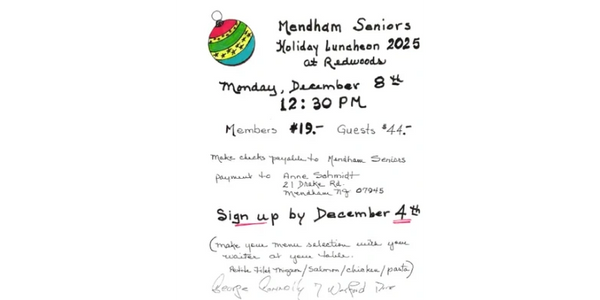 Mendham Seniors
Holiday Luncheon 2025
at Redwoods
Monday, December 8th
12:30 PM
Members $19.- Guests $44.-
Make checks payable to Mendham Seniors
payment to Anne Schmidt
21 Drake Rd.
Mendham NJ 07945
Sign up by December 4th
(make your menu selection with your
waiter at your table.
Petite Filet Mignon/Salmon/chicken/pasta)
George Connolly 7